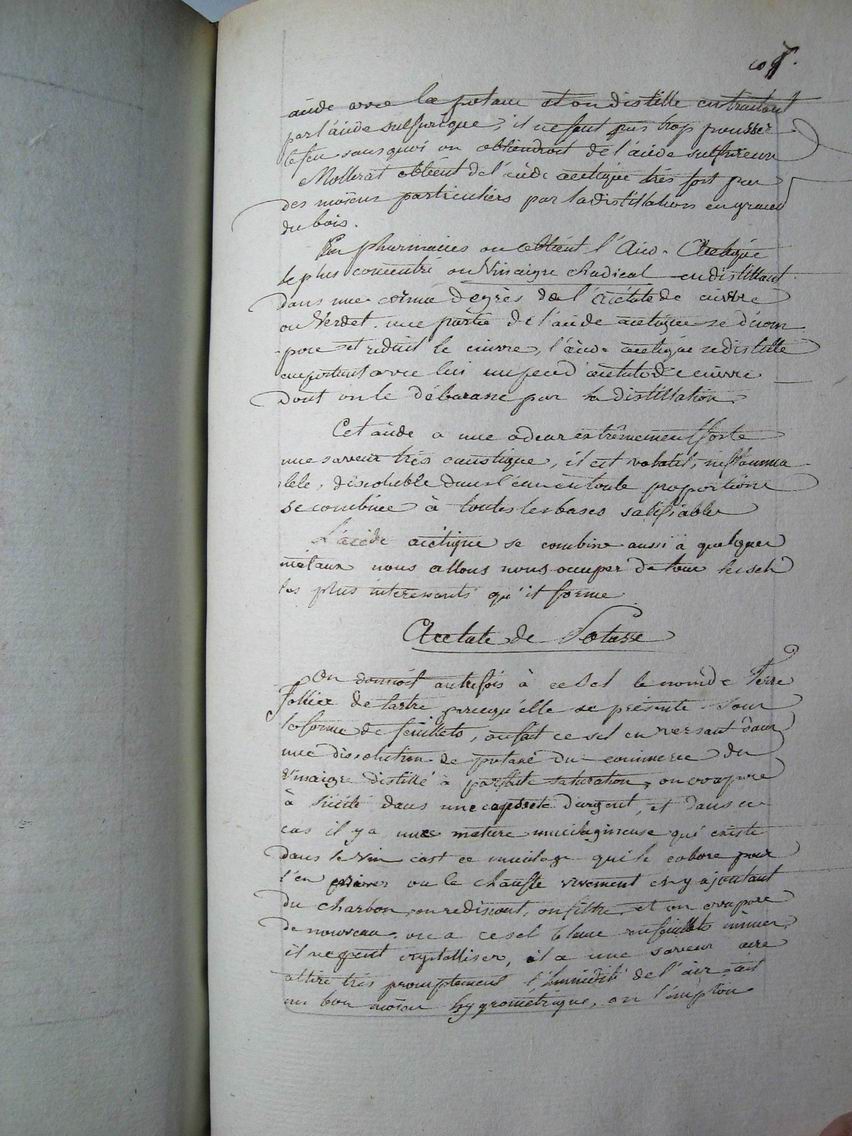 acide avec la potasse et on distille en traitant
par l'acide sulfurique, il ne faut pas trop pousser
le feu sans quoi on obtiendroit de l'acide sulfureux
Mollerat obtient de l'acide acetique très fort par
des moïens particuliers par la distillation en grand
du bois.
En pharmacies on obtient l'Acide Acetique
le plus concentré ou Vinaigre Radical en distillant
dans une cornue De grès de l'acétate de cuivre
ou Verdet. une partie de l'acide acetique se décom
pose et reduit le cuivre, l'acide acetique redistille
emportant avec lui un peu d'acetate De cuivre
Dont on le débarasse par la distillation.
Cet acide a une odeur extrêmement forte
une saveur très caustique, il est volatil, inflamma
ble, dissoluble dans l'eau en toute proportions
se combine à toutes les bases salifiables
L'acide acétique se combine aussi à quelques
métaux nous allons nous occuper de tous les sels
les plus interessants qu'il forme
Acetate de Potasse
On donnoit autrefois à ce Sel le nom de Terre
folliée de tartre parcequ'elle se présente Sous
la forme de feuillets, on fait ce sel en versant dans
une dissolution de potasse du commerce du
Vinaigre distillé à parfaite saturation, on evapore
à siccité dans une capsule d'argent, et dans ce
cas il y a une matiere mucilagineuse qui existe
dans le vin c'est ce mucilage qui le colore pour
l'en priver on le chauffe vivement en y ajoutant
du charbon, on redissout, on filtre, et on evapore
de nouveau. on a ce sel blanc en feuillets minces
il ne peut crystalliser, il a une saveur acre
attire très promptement l'humidité de l'air, est
un bon moïen hygrométrique, on l'emploie